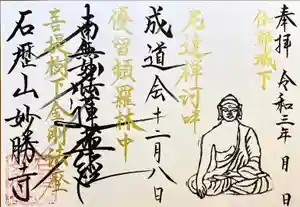 奉拝 令和三年 月 日
佐都城下
尼連禅河畔
成道会 十二月八日
優留頻羅林中
南無妙法蓮華経
菩提樹下金剛宝座
石歴山妙勝寺